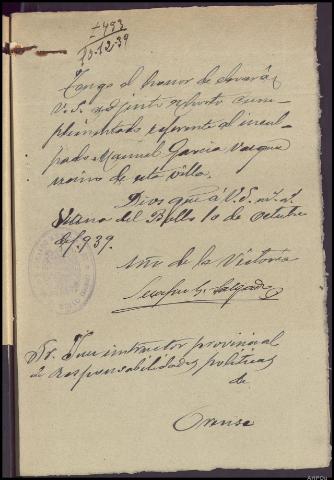 493
13-12-39
Tengo el honor de elevar a
V.S. adjunto exhorto cum-
plimentado referente al incul-
pado Manuel Garcia
vecino de esta villa.
Dios gue a V.S. m. a.
Viana del Bollo 10 de Octubre
de 1.939.
Año de la Victoria
Sr. Juez instructor provincial
de responsabilidades politicas
de
Orense